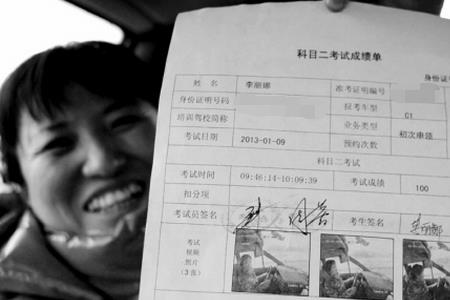 科目二考试成绩单
身份证
姓 名 李丽娜 准考证明编号
身份证明号码 报考车型 C1
培训驾校简称 业务类型 初次申领
考试日期 2013-01-09 预约次数
科目二考试
考试时间 09:46:14-10:09:39 考试成绩 100
扣分项
考试员签名 考生签名 李丽娜
考试
视频
照片
(3张)